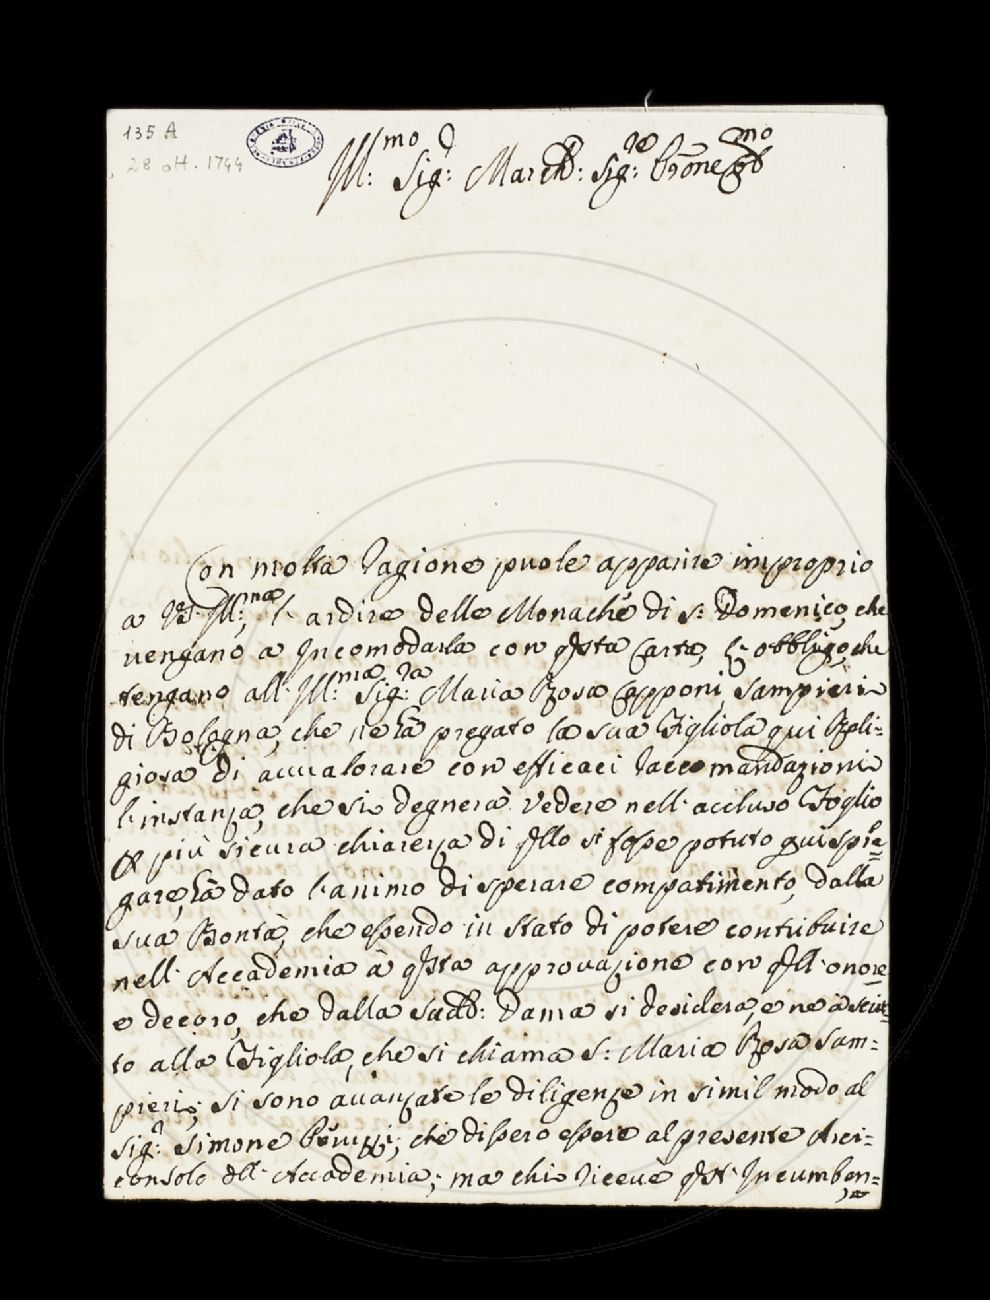 135 A
28 ott. 1744
Ill:mo Sig:r March: Sig:re P̃rone
Con molta ragione puole apparire improprio
a VS: Ill:ma, l'ardire delle Monache di S: Domenico, che
vengano a Incomodarla con q̃sta Carta, l'obbligo, che
tengano all' Ill:ma Sig:ra Maria Rosa Sampieri
di Bologna, che ne hà pregato la sua Figliola qui Reli=
giosa di avvalorare con efficaci raccomandazioni
l'instanza, che si degnerà vedere nell' accluso Foglio
e più sicura chiarezza di q̃llo si fosse potuto qui spie=
gare, hà dato l'animo di sperare compatimento, dalla
sua Bontà, che essendo in stato di potere contribuire
nell' Accademia à q̃sta approvazione con q̃ll' onore
e decoro, che dalla sudd: Dama si desidera, e ne à scrit=
to alla Figliola, che si chiama S: Maria Rosa Sam=
pieri; si sono avanzate le diligenze in simil modo al
Sig:r Simone Peruzzi, che dissero essere al presente Arci=
consolo dell' Accademia; ma chi riceve q̃st' Incumben=